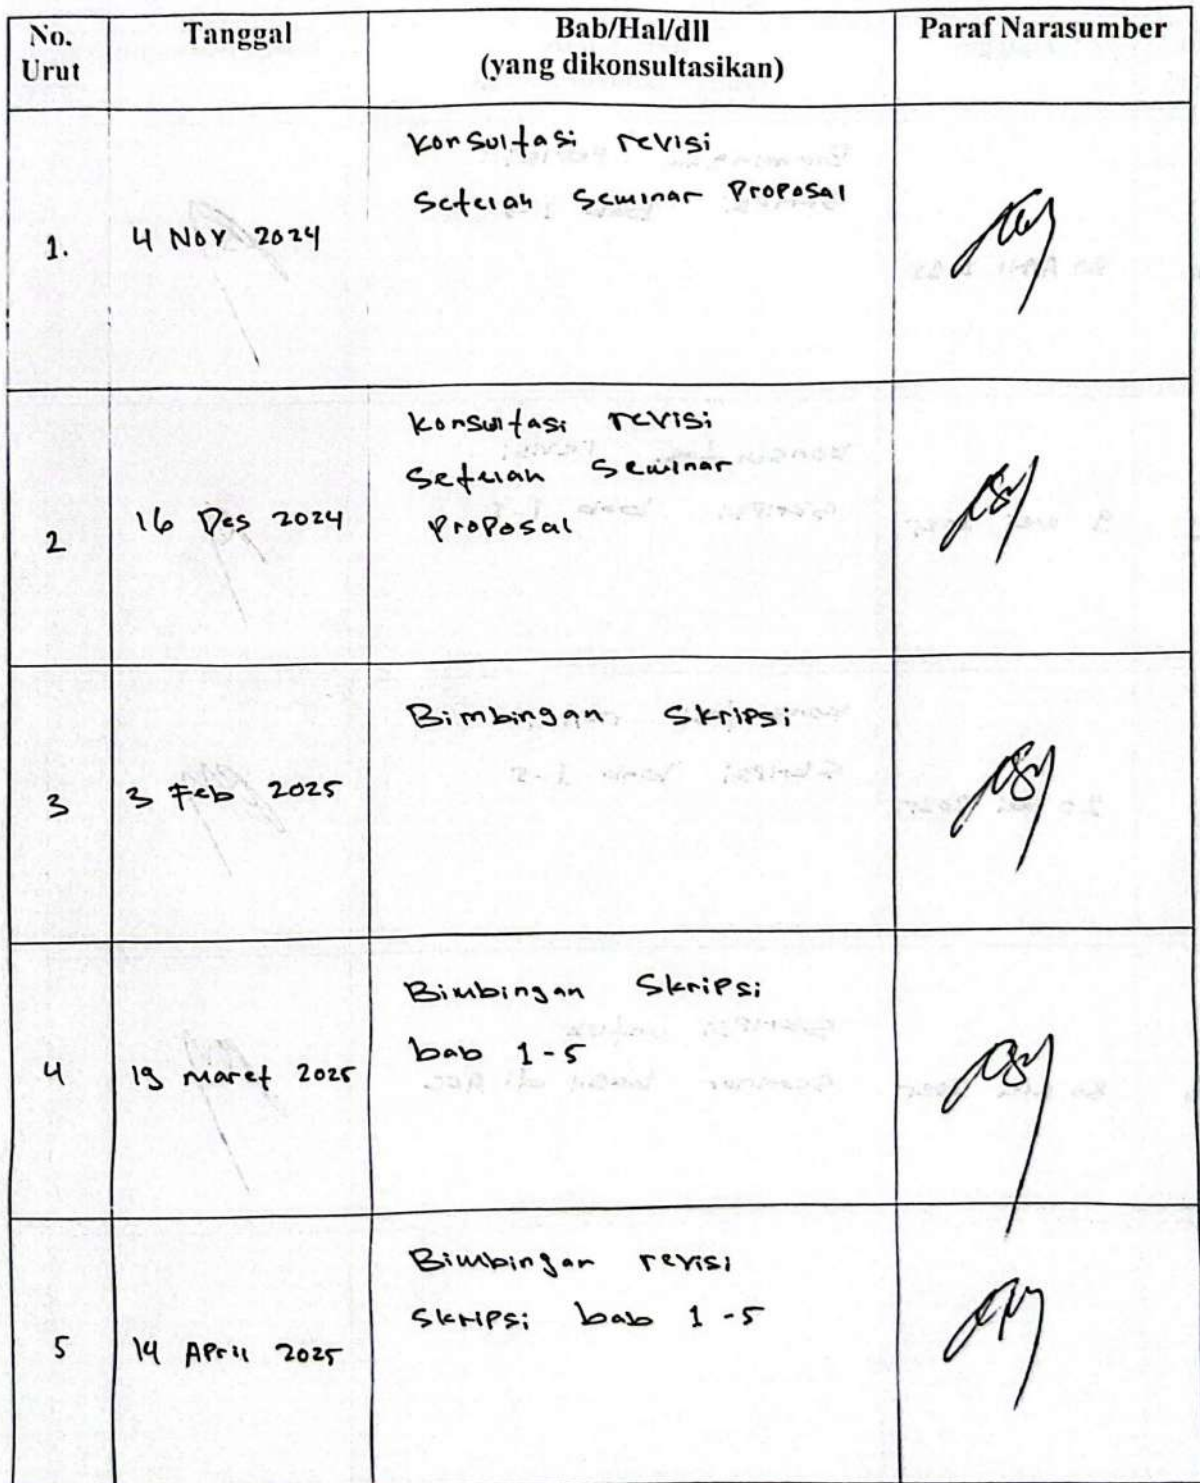 No. Urut
Tanggal
Bab/Hal/dll
(yang dikonsultasikan)
Paraf Narasumber
1.
4 Nov 2024
Konsultasi revisi
Setelah Seminar Proposal
2
16 Des 2024
Konsultasi revisi
Setelah Seminar
Proposal
3
3 Feb 2025
Bimbingan Skripsi
4
19 Maret 2025
Bimbingan Skripsi
bab 1-5
5
14 April 2025
Bimbingan revisi
Skripsi bab 1-5